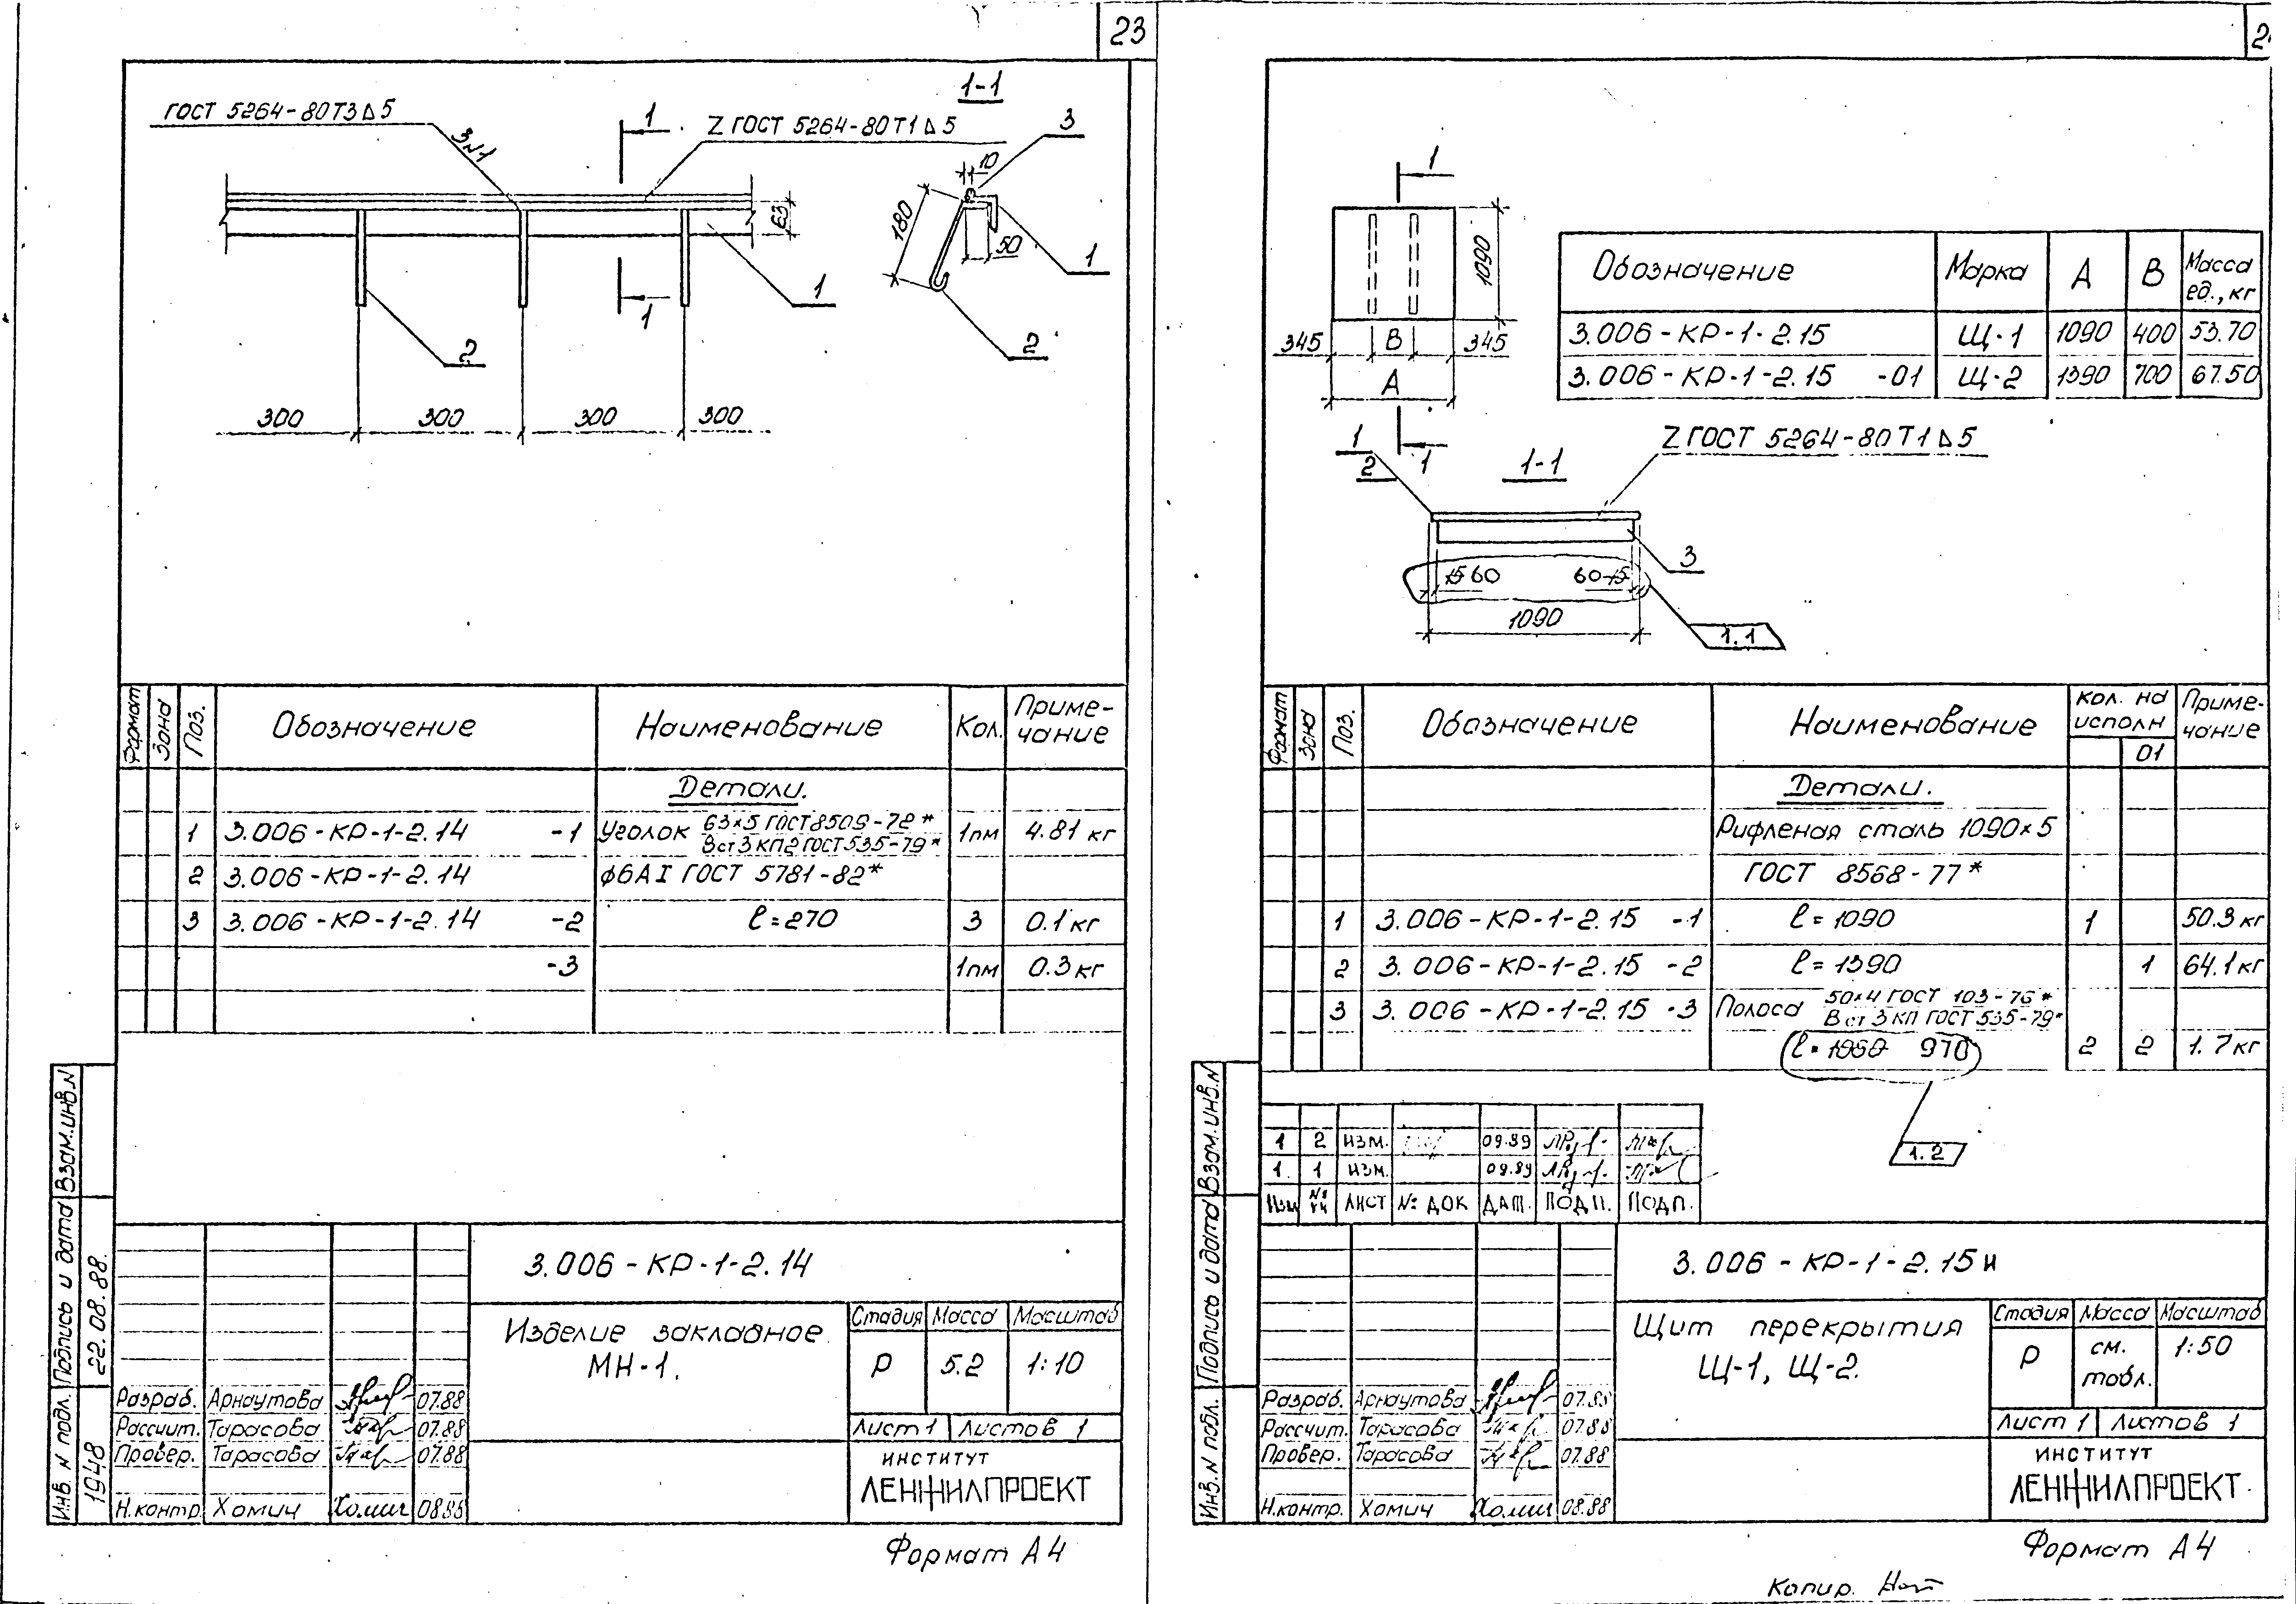 23
ГОСТ 5264-80 Т3 ⊿ 5
3 №1
1
Z ГОСТ 5264-80 Т1 ⊿ 5
1-1
3
10
63
180
50
1
1
1
2
2
300 300 300 300
Формат Зона Поз. Обозначение Наименование Кол. Приме-чание
Детали.
1 3.006-КР-1-2.14 -1 Уголок 63×5 ГОСТ 8509-72* 1пм 4.81 кг
Вст3КП2 ГОСТ 535-79*
2 3.006-КР-1-2.14 ϕ6АI ГОСТ 5781-82*
3 3.006-КР-1-2.14 -2 ℓ=270 3 0.1 кг
-3 1пм 0.3 кг
Инв. N подл. Подпись и дата Взам.инв.N
1948 22.08.88.
3.006-КР-1-2.14
Изделие закладное
МН-1.
Стадия Масса Масштаб
Р 5.2 1:10
Лист 1 Листов 1
Разраб. Арнаутова 07.88
Рассчит. Тарасова 07.88
Провер. Тарасова 07.88
Н.контр. Хомич 08.88
ИНСТИТУТ
ЛЕНЖИЛПРОЕКТ
Формат А4
1
1090
345 В 345
А
1
Обозначение Марка А В Масса ед., кг
3.006-КР-1-2.15 Щ-1 1090 400 53.70
3.006-КР-1-2.15 -01 Щ-2 1390 700 67.50
1
2
1-1
Z ГОСТ 5264-80 Т1 ⊿ 5
3
15 60 60 15
1090
1.1
Формат Зона Поз. Обозначение Наименование Кол. на исполн Приме-чание
01
Детали.
Рифленая сталь 1090×5
ГОСТ 8568-77*
1 3.006-КР-1-2.15 -1 ℓ=1090 1 50.3 кг
2 3.006-КР-1-2.15 -2 ℓ=1390 1 64.1 кг
3 3.006-КР-1-2.15 -3 Полоса 50×4 ГОСТ 103-76*
Вст3КП ГОСТ 535-79*
ℓ=1060 970 2 2 1.7 кг
1.2
1 2 ИЗМ. 09.89
1. 1 ИЗМ. 09.89
Изм № уч ЛИСТ № ДОК ДАТ. ПОДП. ПОДП.
Инв. N подл. Подпись и дата Взам.инв.N
3.006-КР-1-2.15и
Щит перекрытия
Щ-1, Щ-2.
Стадия Масса Масштаб
Р см. табл. 1:50
Лист 1 Листов 1
Разраб. Арнаутова 07.88
Рассчит. Тарасова 07.88
Провер. Тарасова 07.88
Н.контр. Хомич 08.88
ИНСТИТУТ
ЛЕНЖИЛПРОЕКТ
Формат А4
Копир.